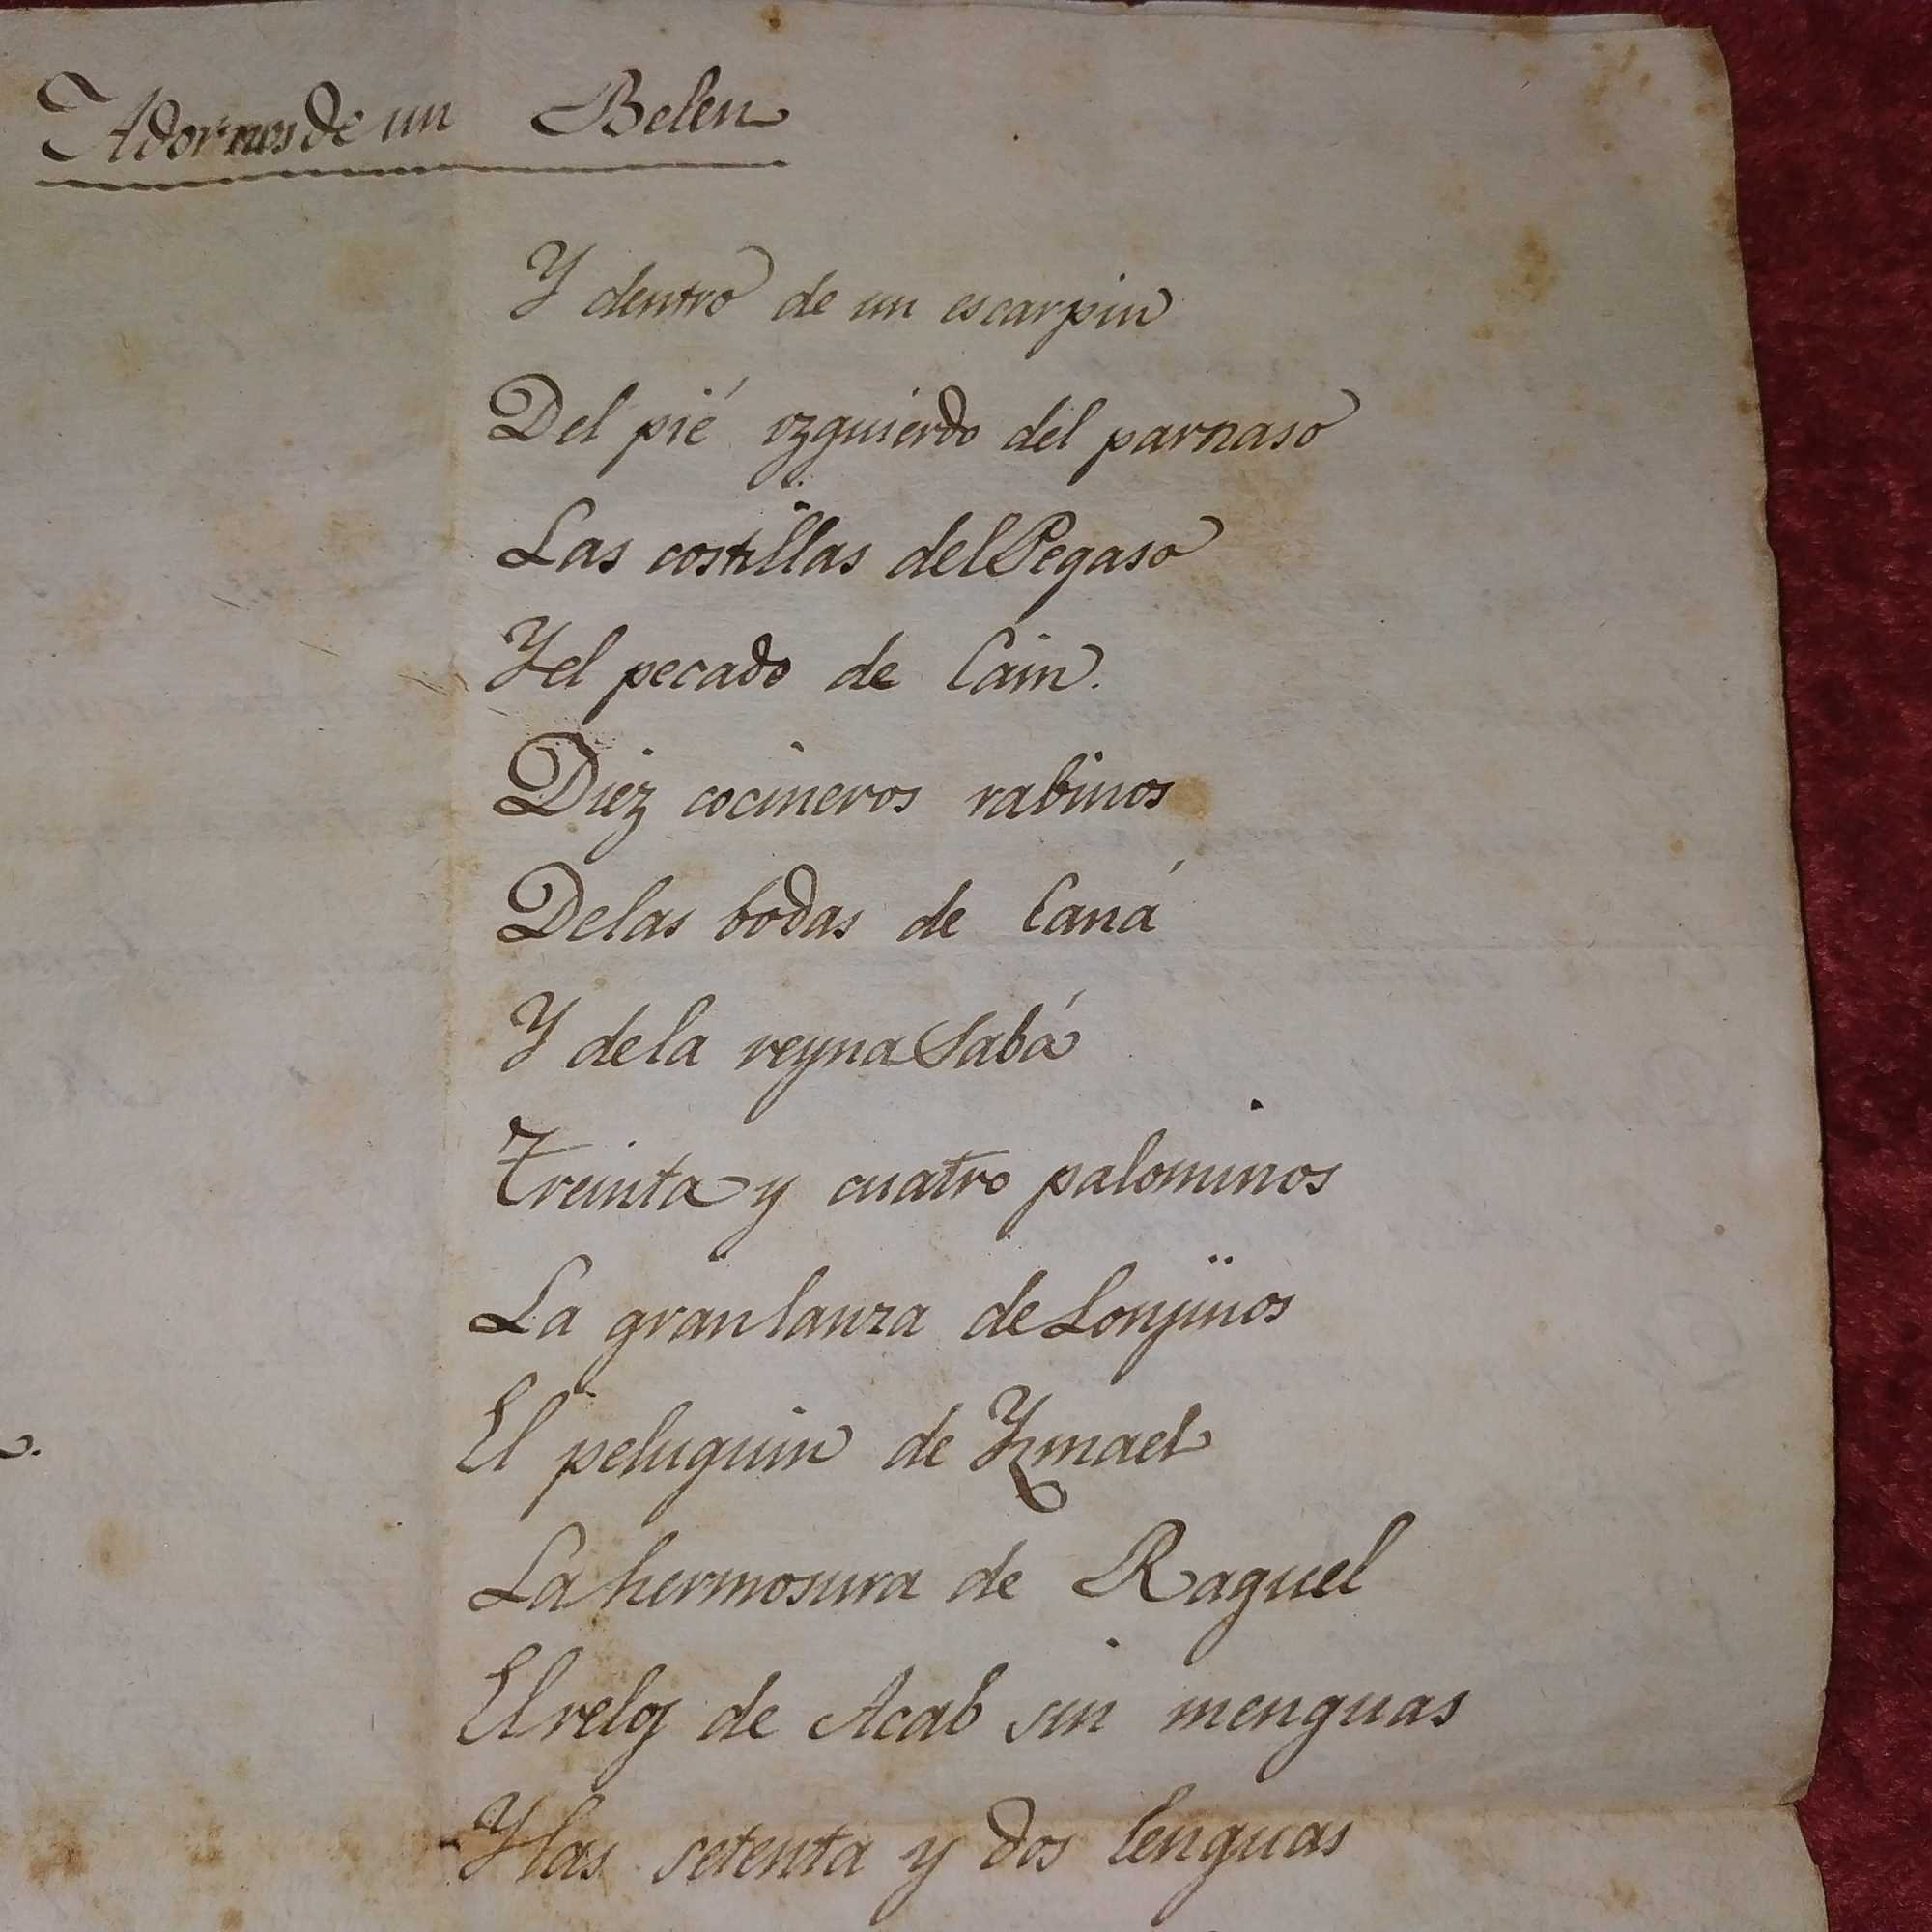 Adornos de un Belen
Y dentro de un escarpin
Del pié izquierdo del parnaso
Las costillas del Pegaso
Y el pecado de Cain.
Diez cocineros rabinos
De las bodas de Caná
Y de la reyna Sabá
Treinta y cuatro palominos
La gran lanza de Lonjinos
El peluquin de Ysmael
La hermosura de Raquel
El reloj de Acab sin menguas
Y las setenta y dos lenguas